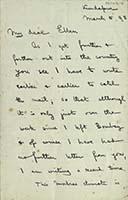 March 5. 98
My dear Ellen
As I get further &
further out into the country
you see I have to write
earlier & earlier to catch
the mail, so that although
it is only just over the
week since I left Bombay
& of course I have had
no further letter from you
I am writing a second time.
This Indian climate is